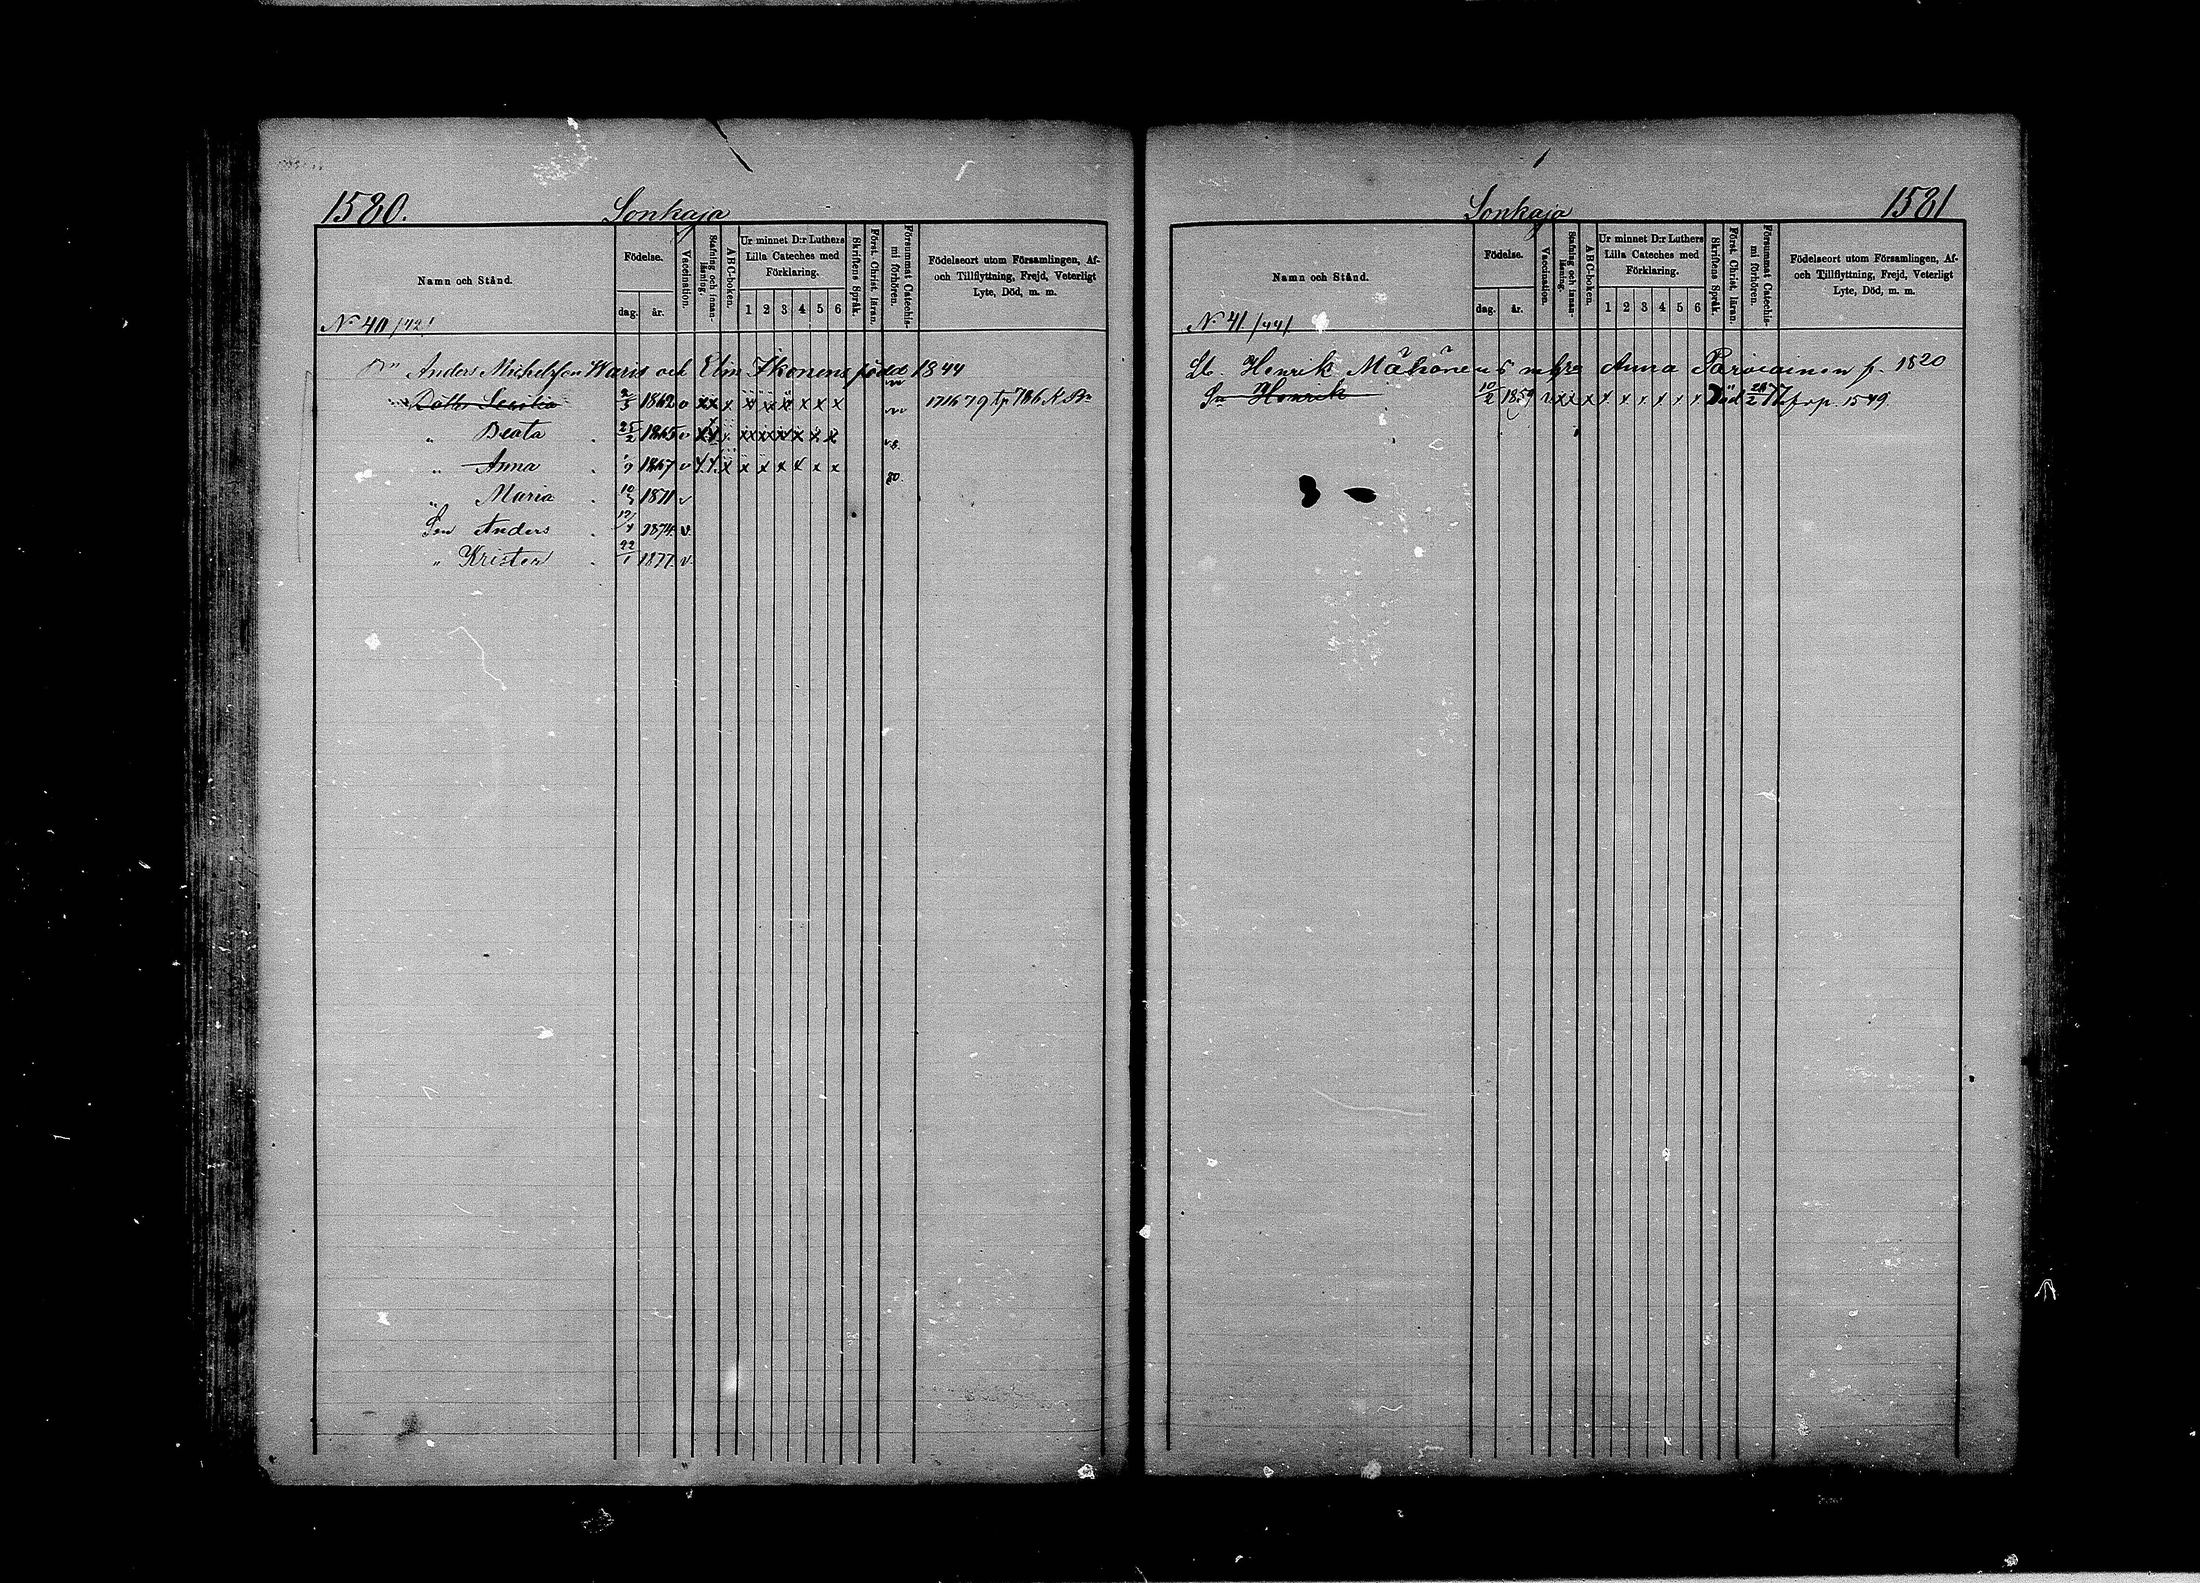 1580.
Sonkaja
Namn och Stånd.
Födelse.
dag.
år.
Vaccination.
Stafning och innanläsning.
ABC-boken.
Ur minnet D:r Luthers
Lilla Cateches med
Förklaring.
1 2 3 4 5 6
Skriftens Språk.
Först. Christ. läran.
Försummat Catechismi förhören.
Födelseort utom Församlingen, Af-
och Tillflyttning, Frejd, Veterligt
Lyte, Död, m. m.
N:o 40 /42/
Anders Michelsson Waris och Elin Ikonens född 1844
Dottr Cecilia 2/3 1862 v xx x x x x x x x 1716 79
" Beata 25/2 1865 v x x x x x x x x
" Anna 1/9 1867 v x x x x x x x x x 80
" Maria 1871 v
Sn Anders 1874 v
" Krister 22/1 1877 v
1581
Sonkaja
Namn och Stånd.
Födelse.
dag.
år.
Vaccination.
Stafning och innanläsning.
ABC-boken.
Ur minnet D:r Luthers
Lilla Cateches med
Förklaring.
1 2 3 4 5 6
Skriftens Språk.
Först. Christ. läran.
Försummat Catechismi förhören.
Födelseort utom Församlingen, Af-
och Tillflyttning, Frejd, Veterligt
Lyte, Död, m. m.
N:o 41 /44/
Henrik Mähönens Anna Parviainen f. 1820
Sn Henrik 10/2 1859 v x x x x x x x x x Död 24/2 77 p. 1549